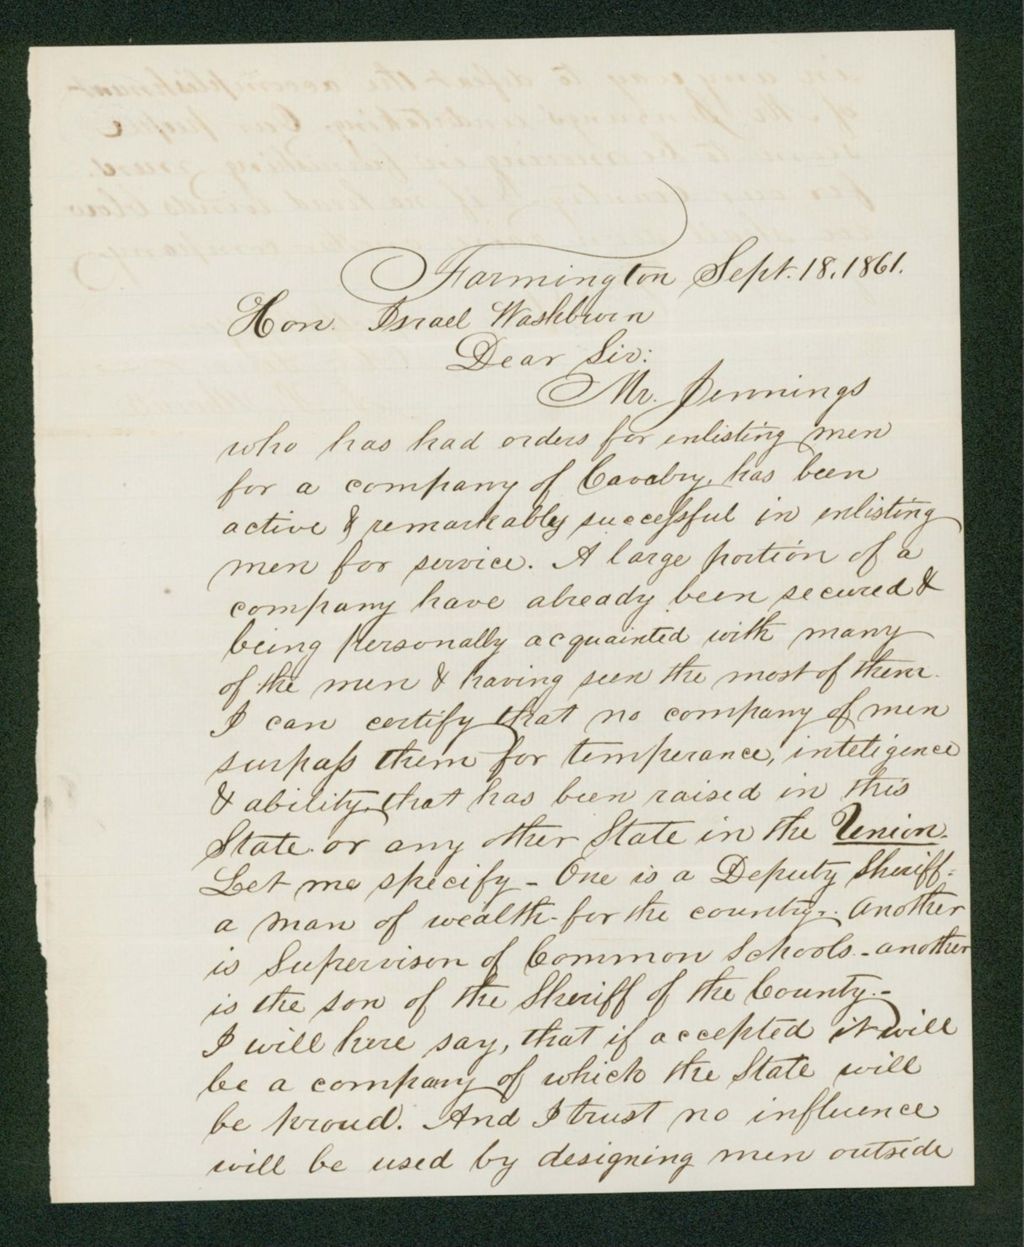 Farmington Sept. 18, 1861.
Hon. Israel Washburn
Dear Sir:
Mr. Jennings
who has had orders for enlisting men
for a company of Cavalry, has been
active & remarkably successful in enlisting
men for service. A large portion of a
company have already been secured &
being personally acquainted with many
of the men & having seen the most of them.
I can certify that no company of men
surpass them for temperance, inteligence
& ability, that has been raised in this
State or any other State in the Union.
Let me specify - One is a Deputy Sheriff -
a man of wealth - for the country. Another
is Supervison of Common Schools - another
is the son of the Sheriff of the County. -
I will here say, that if accepted it will
be a company of which the State will
be proud. And I trust no influence
will be used by designing men outside